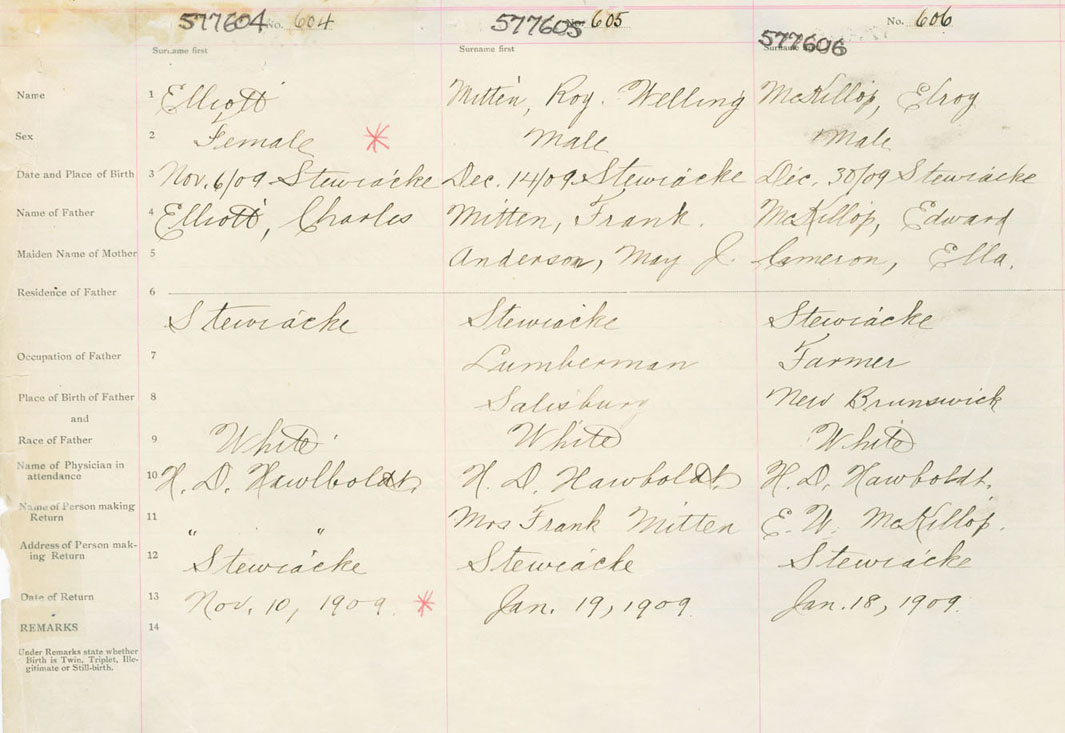 577604 No. 604 577605 No. 605 No. 606
577606
Surname first Surname first Surname
Name 1 Elliott Mitten, Roy. Welling McKillop, Elroy
Sex 2 Female * Male Male
Date and Place of Birth 3 Nov. 6/09 Stewiacke Dec. 14/09 Stewiacke Dec. 30/09 Stewiacke
Name of Father 4 Elliott, Charles Mitten, Frank. McKillop, Edward
Maiden Name of Mother 5 Anderson, May J. Cameron, Ella.
Residence of Father 6
Stewiacke Stewiacke Stewiacke
Occupation of Father 7 Lumberman Farmer
Place of Birth of Father 8 Salisbury New Brunswick
and
Race of Father 9 White White White
Name of Physician in
attendance 10 H. D. Hawlboldt. H. D. Hawboldt. H. D. Hawboldt.
Name of Person making
Return 11 " " Mrs Frank Mitten E. W. McKillop.
Address of Person mak-
ing Return 12 Stewiacke Stewiacke Stewiacke
Date of Return 13 Nov. 10, 1909. * Jan. 19, 1909. Jan. 18, 1909.
REMARKS 14
Under Remarks state whether
Birth is Twin, Triplet, Ille-
gitimate or Still-birth.